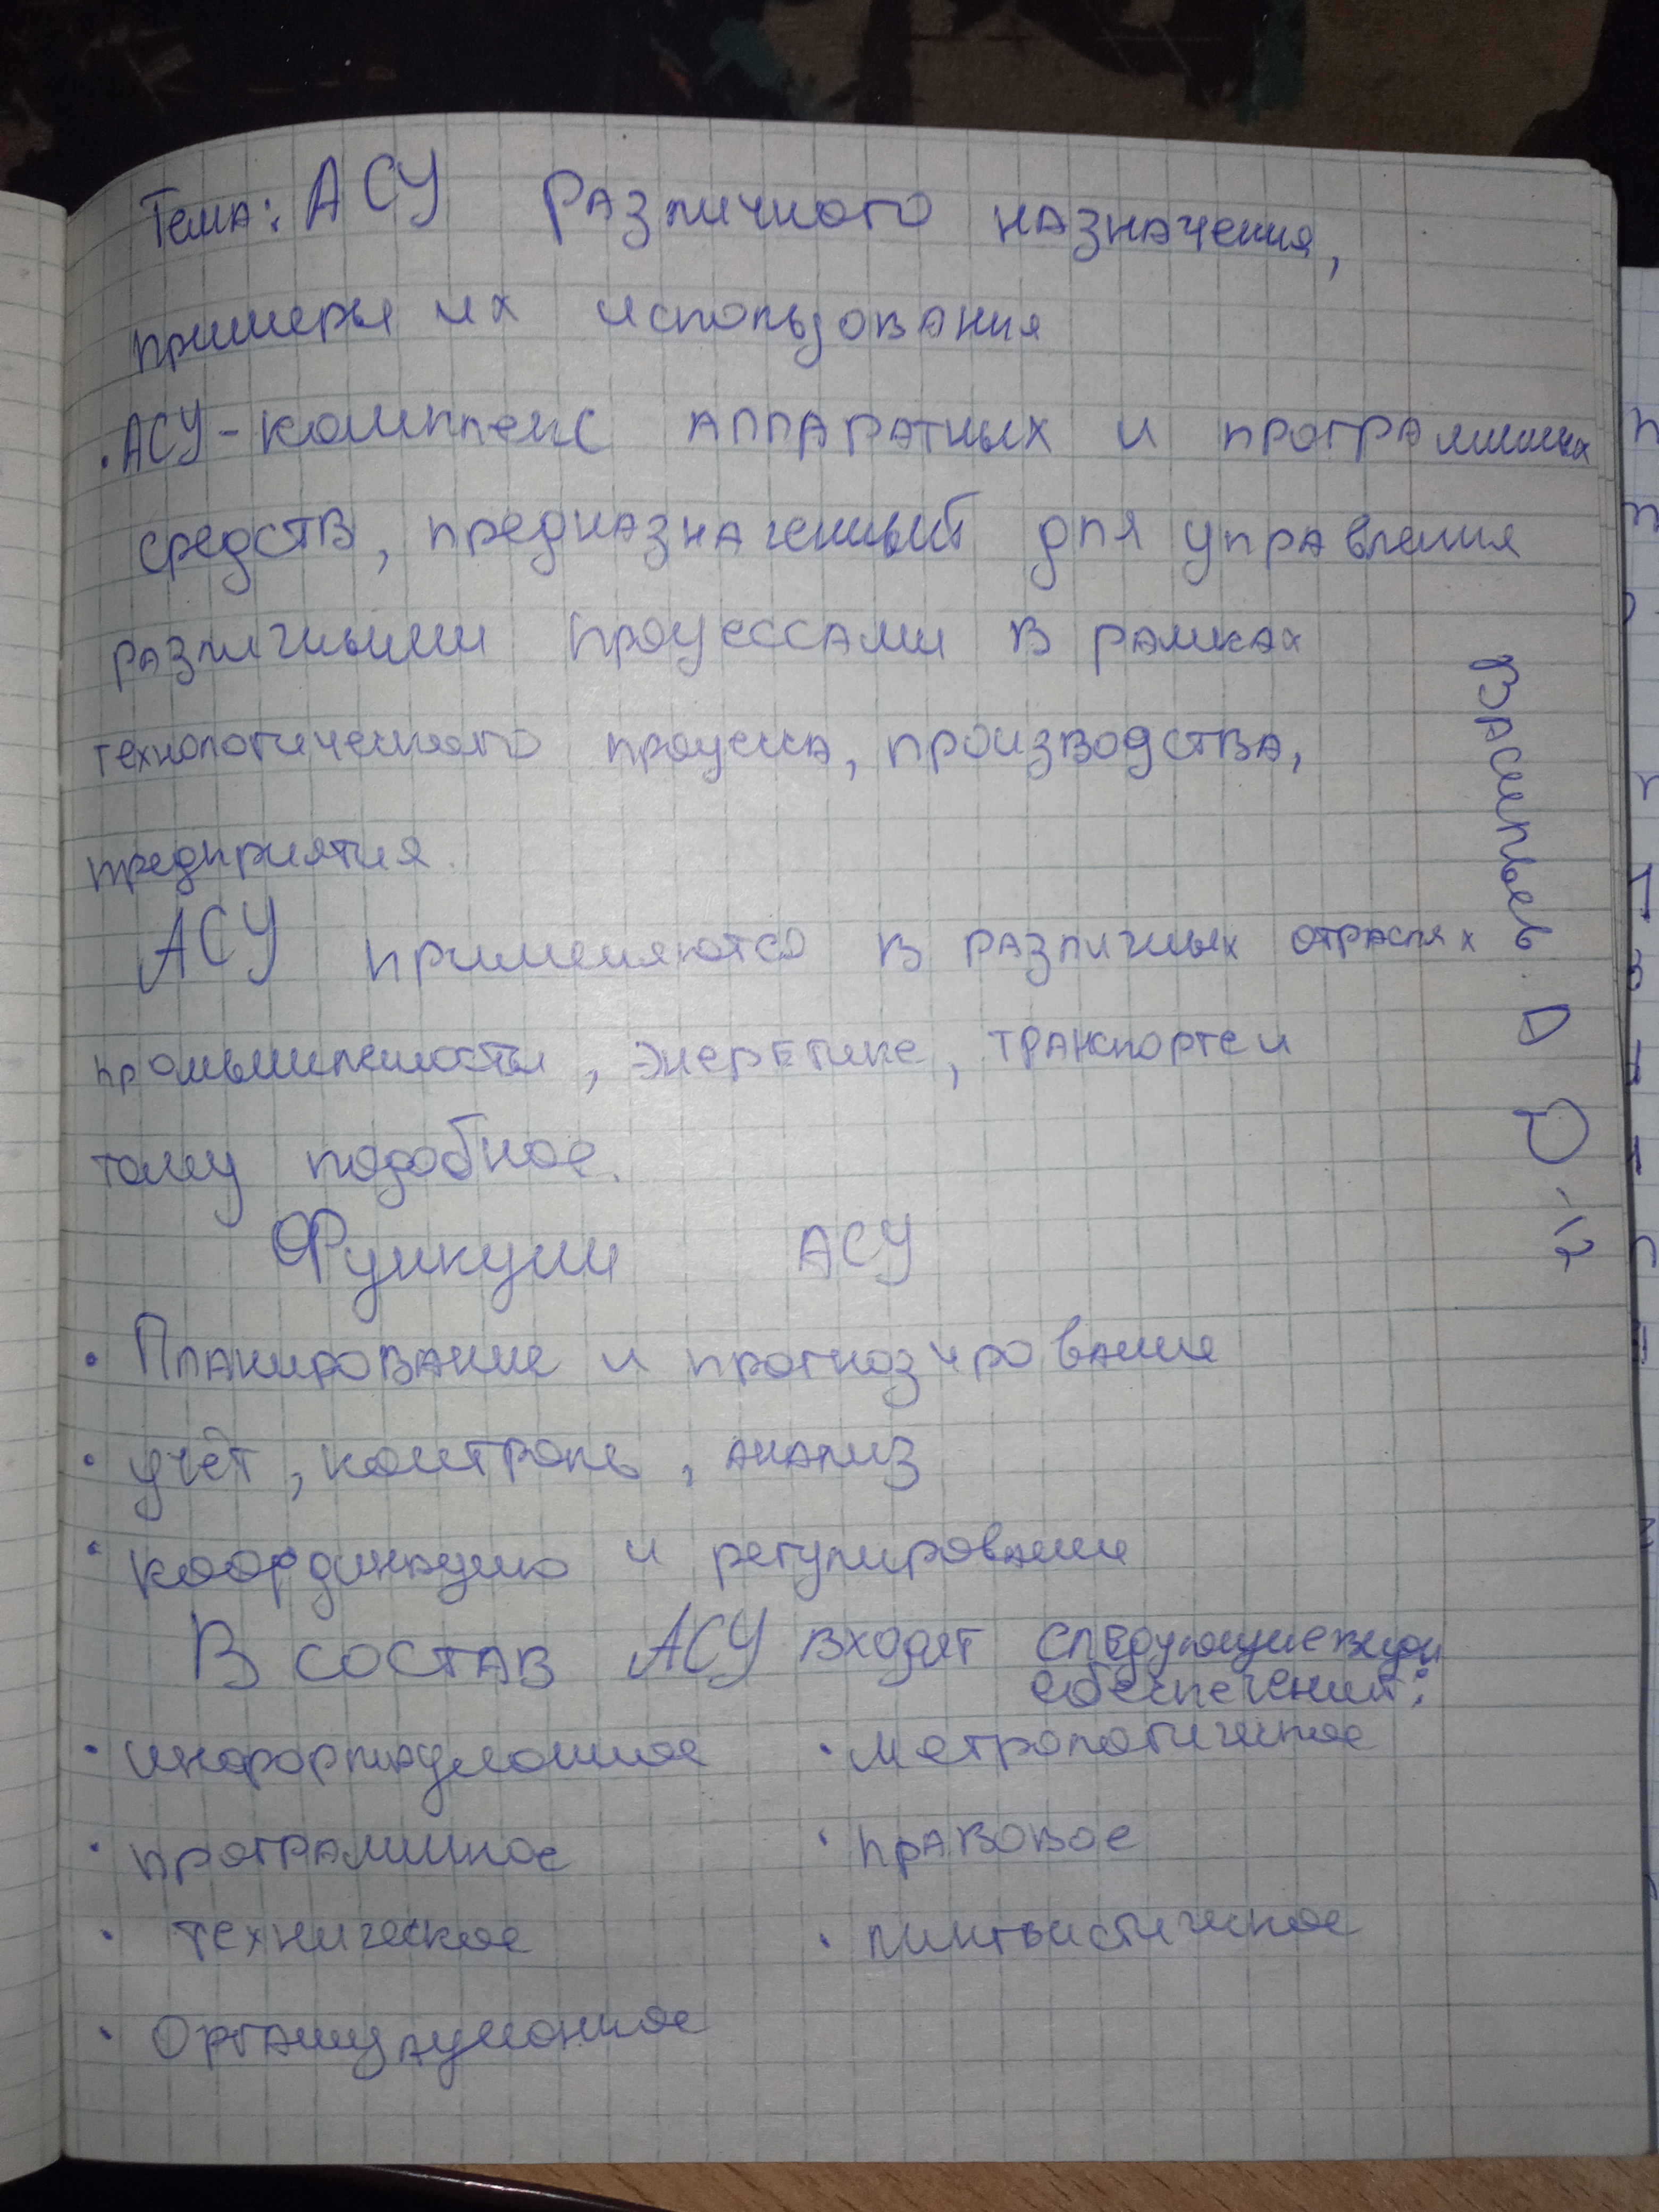 Тема: АСУ Различного назначения,
примеры их использования
• АСУ - комплекс аппаратных и программных
средств, предназначенный для управления
различными процессами в рамках
технологического процесса, производства,
предприятия.
АСУ применяются в различных отраслях
промышленности, энергетике, транспорте и
тому подобное.
Функции АСУ
• Планирование и прогнозирование
• учёт, контроль, анализ
• координацию и регулирование
В состав АСУ входят следующие виды
обеспечений:
• информационное • метрологическое
• программное • правовое
• техническое • лингвистическое
• Организационное
Васильев